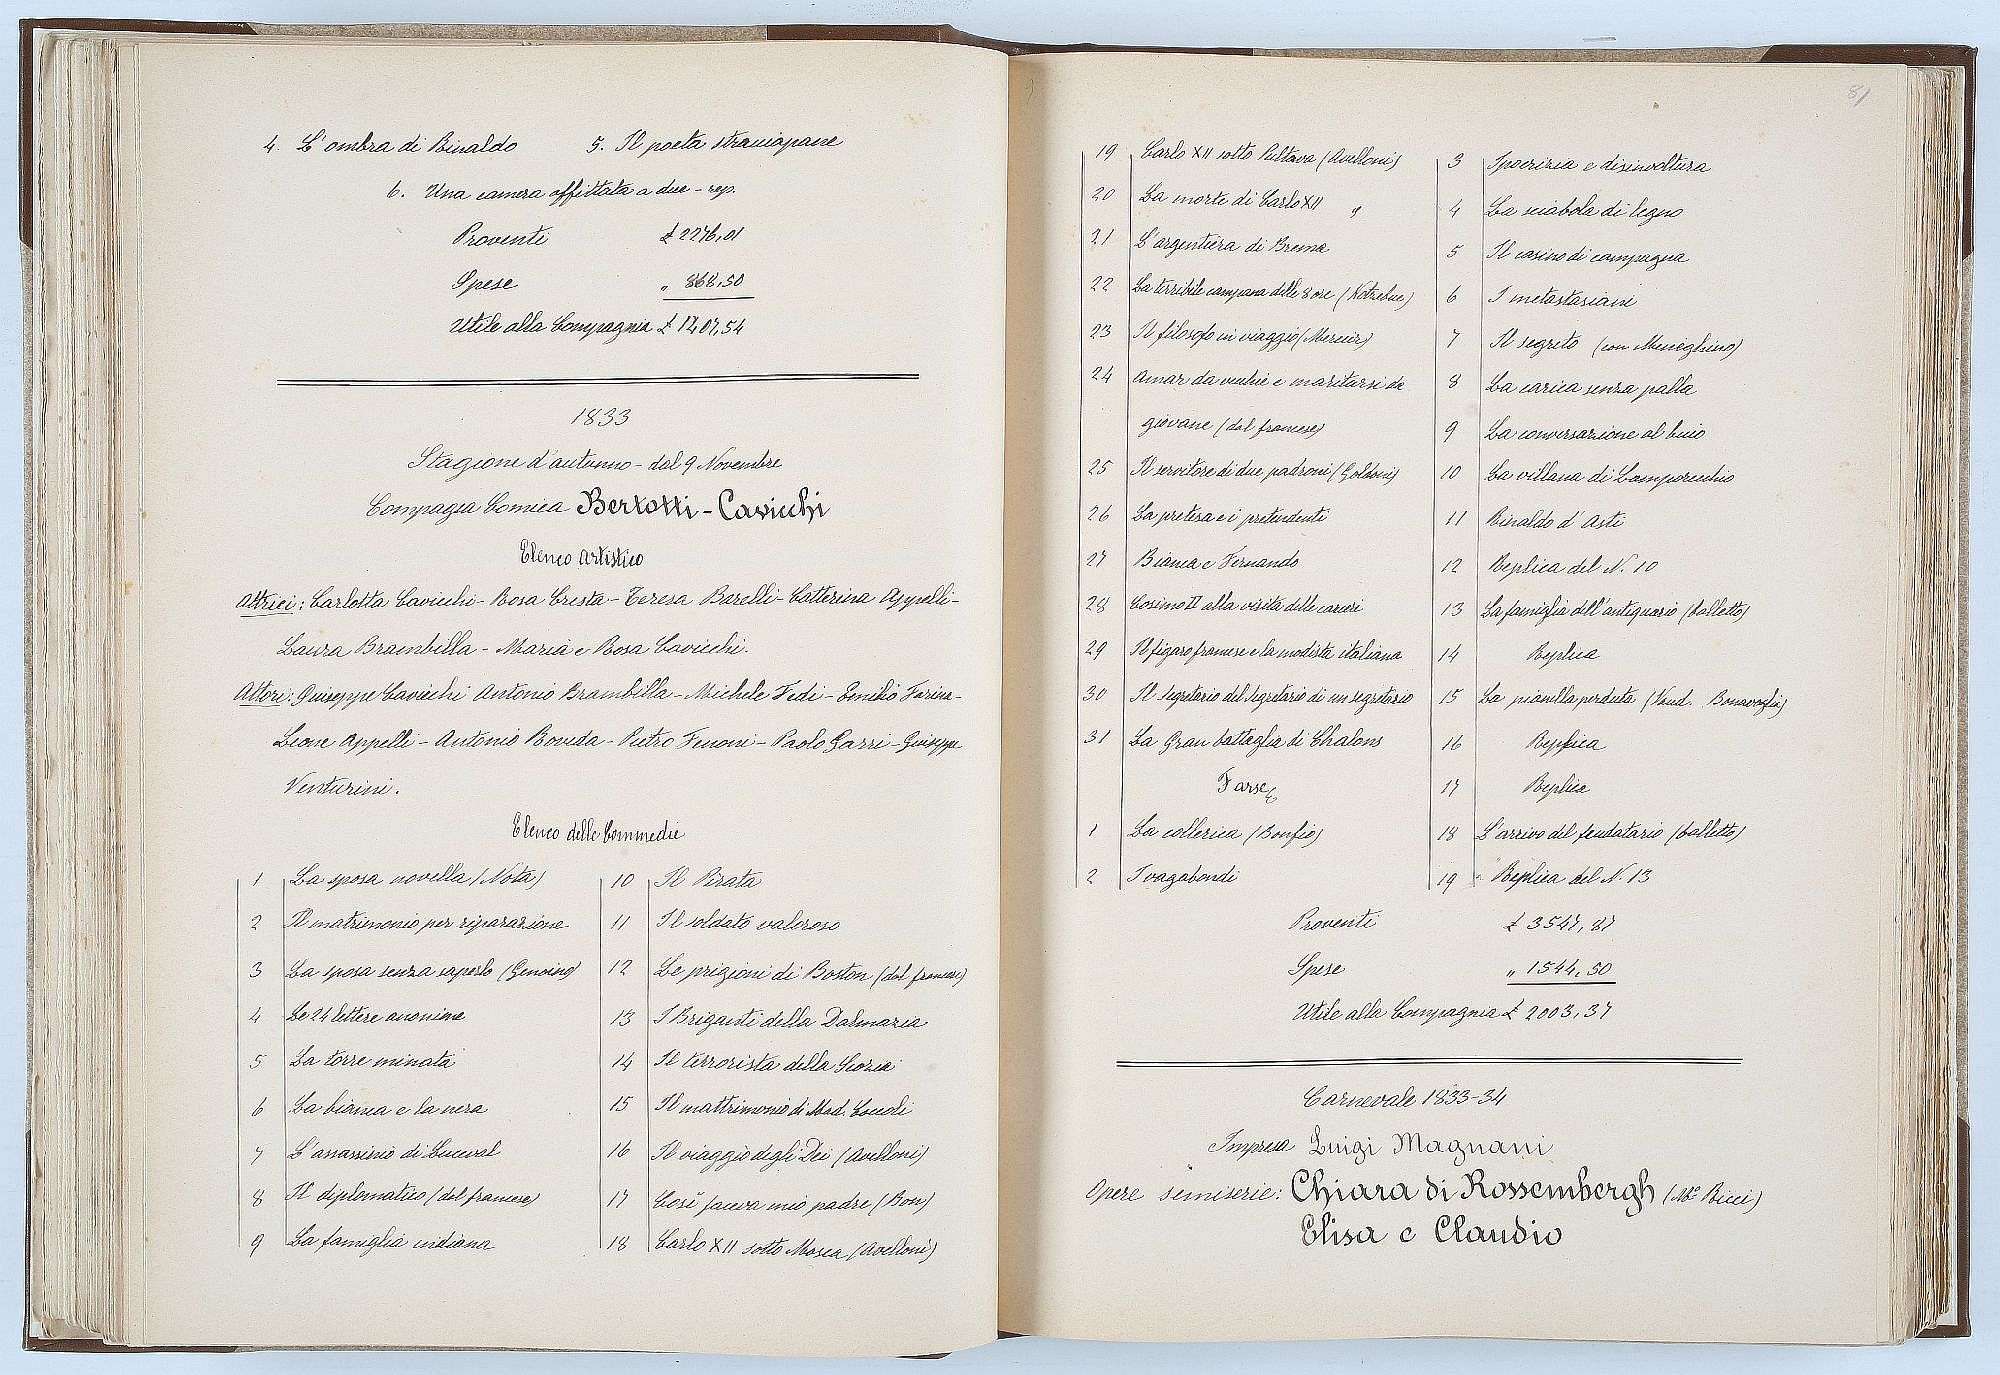 4. L'ombra di Rinaldo 5. Il poeta stravapane
6. Una camera affittata a due - rep.
Proventi £ 2276,01
Spese „ 868,50
Utile alla Compagnia £ 1407,54
1833
Stagione d'autunno - dal 9 Novembre
Compagia Comica Bertotti - Cavicchi
Elenco Artistico
Attrici: Carlotta Cavicchi - Rosa Cresta - Teresa Barelli - Catterina Appelli -
Laura Brambilla - Maria e Rosa Cavicchi.
Attori: Giuseppe Cavicchi Antonio Brambilla - Michele Fedi - Emilio Farina -
Leone Appelli - Antonio Boveda - Pietro Fenoni - Paolo Garri - Giuseppe
Venturini.
Elenco delle Commedie
1 La sposa novella (Nota)
2 Il matrimonio per riparazione
3 La sposa senza saperlo (Genoino)
4 Le 24 lettere anonime
5 La torre minata
6 La bianca e la nera
7 L'assassinio di Luceval
8 Il diplomatico (dal francese)
9 La famiglia indiana
10 Il Pirata
11 Il soldato valoroso
12 Le prigioni di Boston (dal francese)
13 I Briganti della Dalmazia
14 Il terrorista della Scozia
15 Il mattrimonio di Mad. Coccoli
16 Il viaggio degli Dei (Avelloni)
17 Così faceva mio padre (Bon)
18 Carlo XII sotto Mosca (Avelloni)
81
19 Carlo XII sotto Pultava (Avelloni)
20 La morte di Carlo XII "
21 L'argentiera di Brema
22 La terribile campana delle 8 ore (Kotzebue)
23 Il filosofo in viaggio (Mercier)
24 Amar da vechie e maritarsi da
giovane (dal francese)
25 Il servitore di due padroni (Goldoni)
26 La pretesa e i pretendenti
27 Bianca e Fernando
28 Cosimo II alla visita delle carceri
29 Il figaro francese e la modista italiana
30 Il segretario del segretario di un segretario
31 La Gran battaglia di Chalons
Farse
1 La collerica (Bonfio)
2 I vagabondi
3 Ipocrizia e disinvoltura
4 La sciabola di legno
5 Il casino di campagna
6 I metastasiani
7 Il segreto (con Meneghino)
8 La carica senza palla
9 La conversazione al buio
10 La villana di Lamporecchio
11 Rinaldo d'Asti
12 Replica del N. 10
13 La famiglia dell'antiquario (balletto)
14 Replica
15 La pianella perduta (Vaud. Bonavoglia)
16 Replica
17 Replica
18 L'arrivo del feudatario (balletto)
19 Replica del N. 13
Proventi £ 3547,87
Spese „ 1544,50
Utile alla Compagnia £ 2003,37
Carnevale 1833-34
Impresa Luigi Magnani
Opere semiserie: Chiara di Rossembergh (Mo. Ricci)
Elisa e Claudio